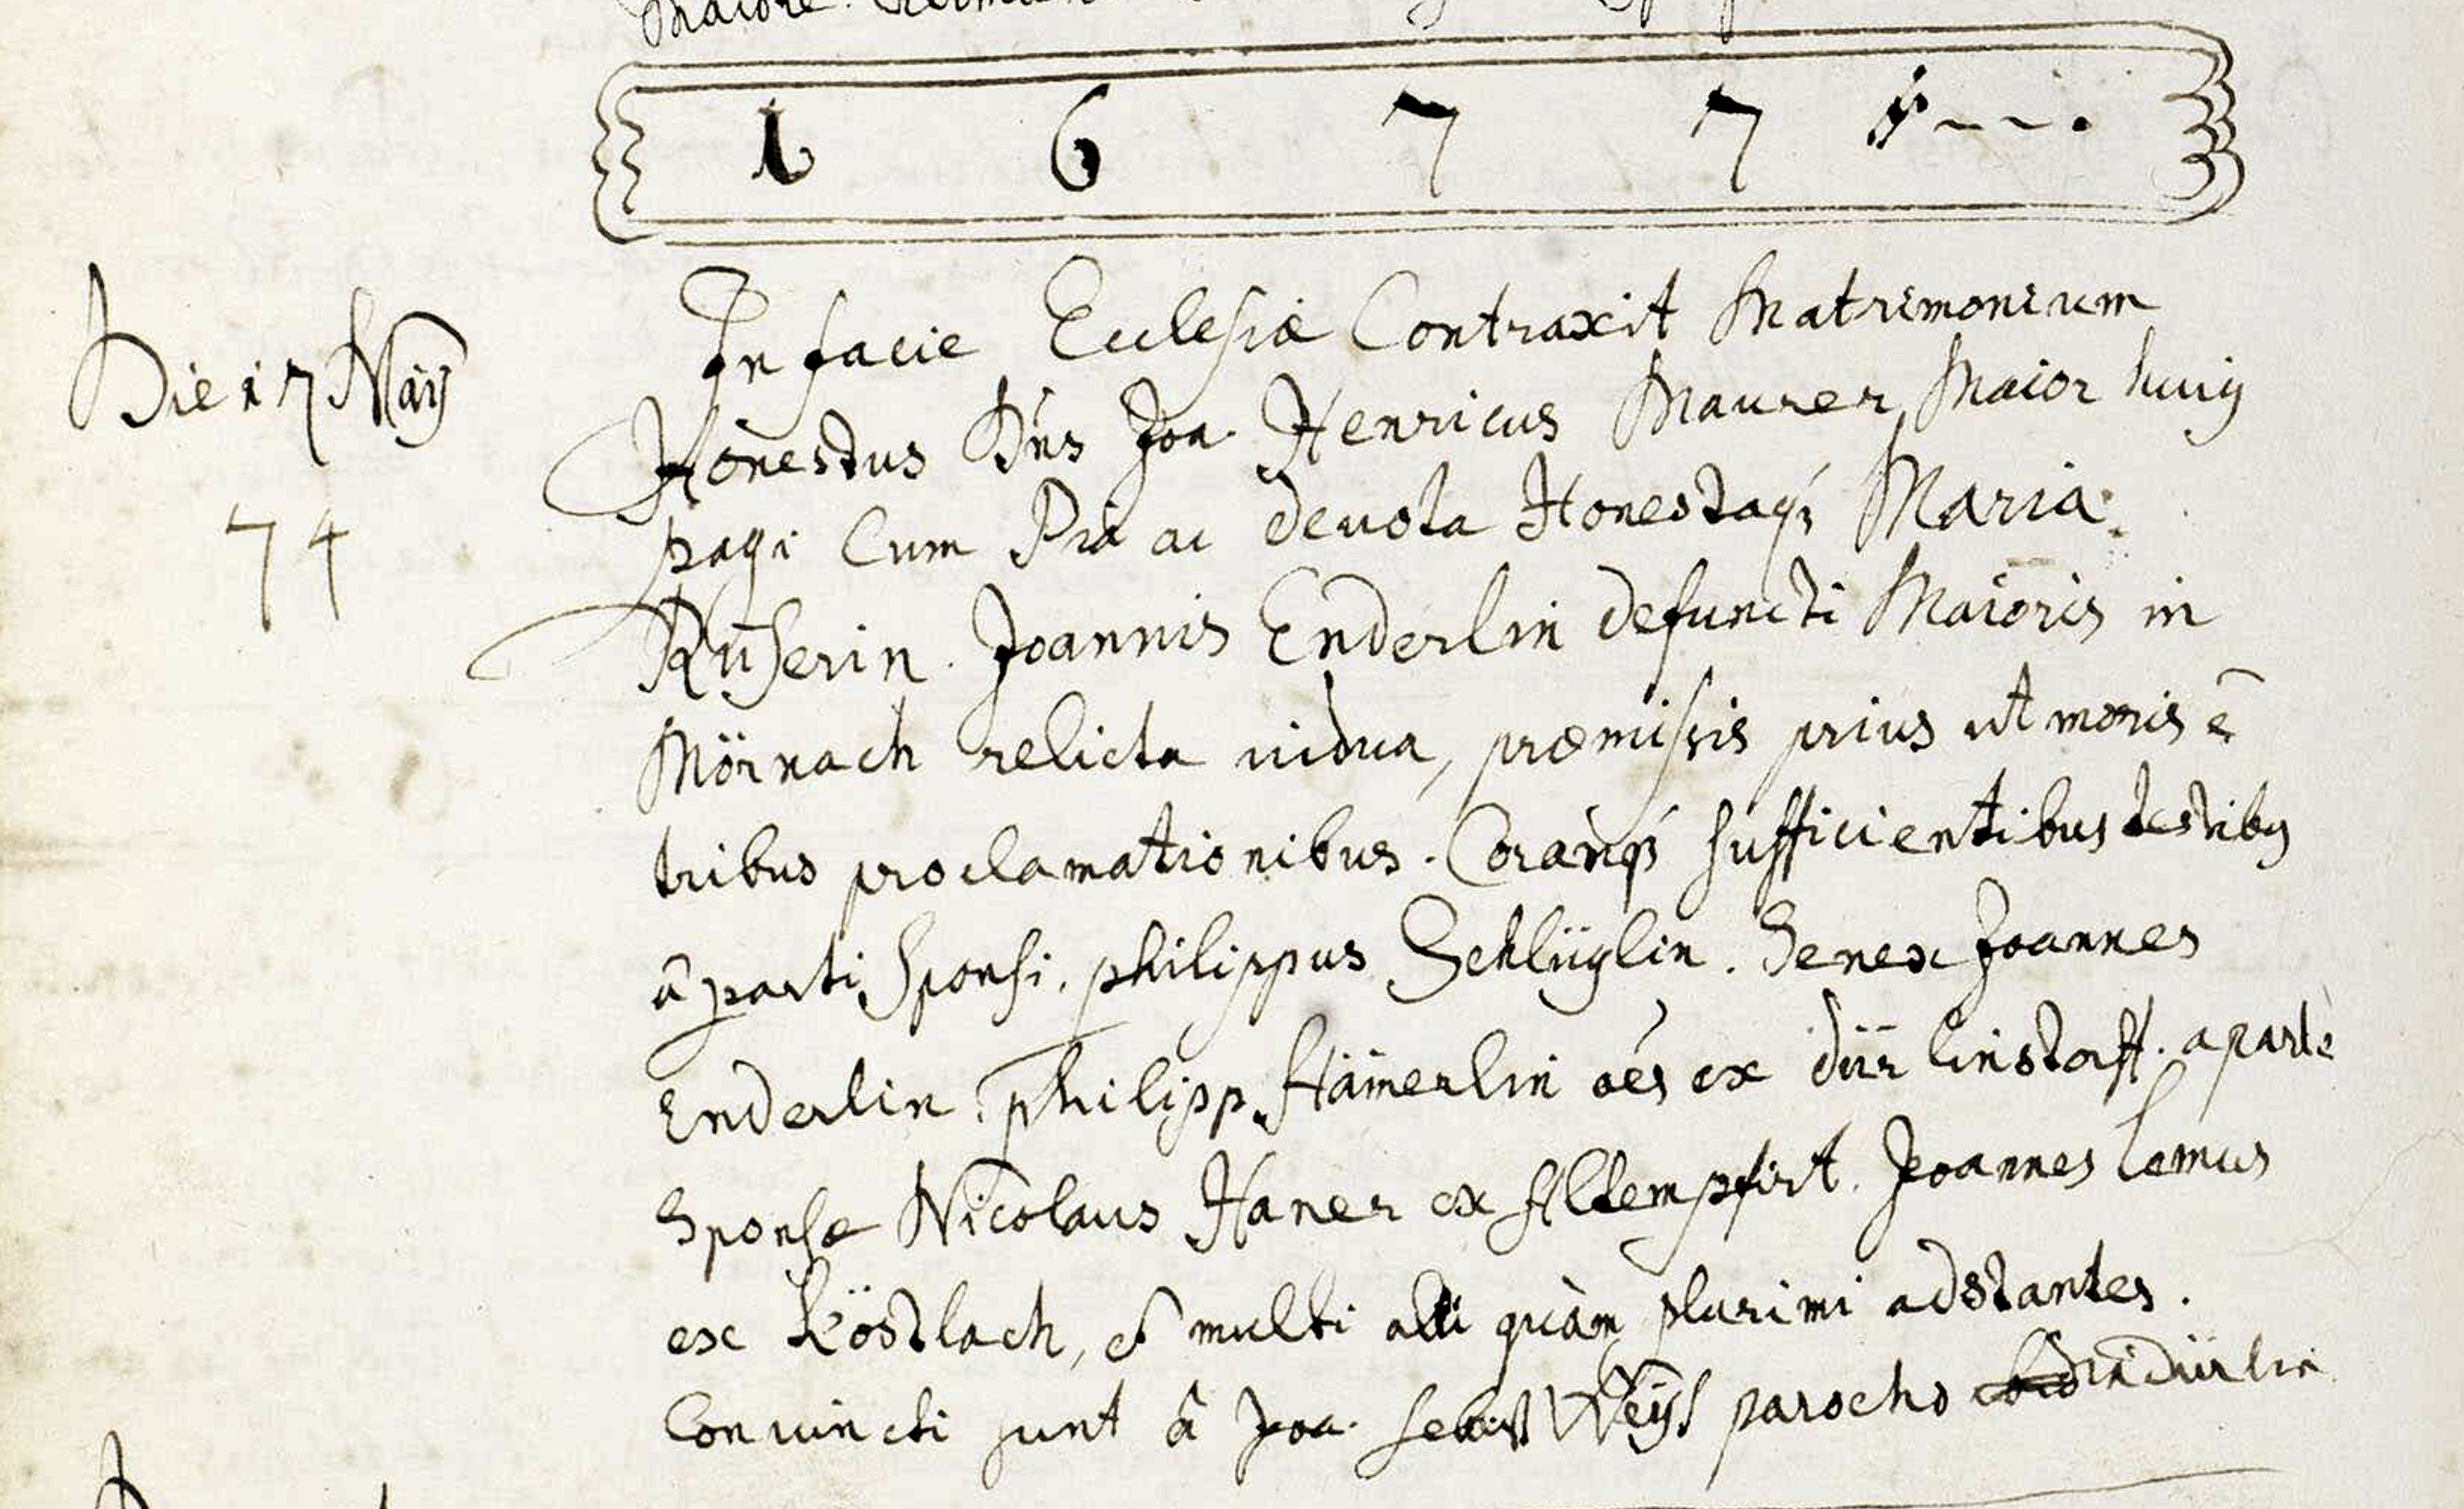 Maiore.
1 6 7 7 i - - - .
Die 17 Maÿ
74
In facie Ecclesiæ Contraxit Matrimonium
Honestus Dn̄s Joa. Henricus Maurer, Maior huiꝰ
pagi Cum Pia ac devota Honestaqꝫ Maria
Rŭserin. Joannis Enderlin defuncti Maioris in
Mörnach relicta uidua, præmissis prius ut moris ē
tribus proclamationibus. Coramqꝫ sufficientibus testibꝰ
â parti Sponsi, philippus Schlüglin. Senex Joannes
Enderlin. philipp. Häm̄erlin oēs ex dürlinstorff. a parte
Sponsæ Nicolaus Haner ex Altempfirt. Joannes Lemus
ex Köstlach, et multi alii quàm plurimi adstantes.
Conuincti sunt â Joa. Sebast Weÿss parocho in dürlin